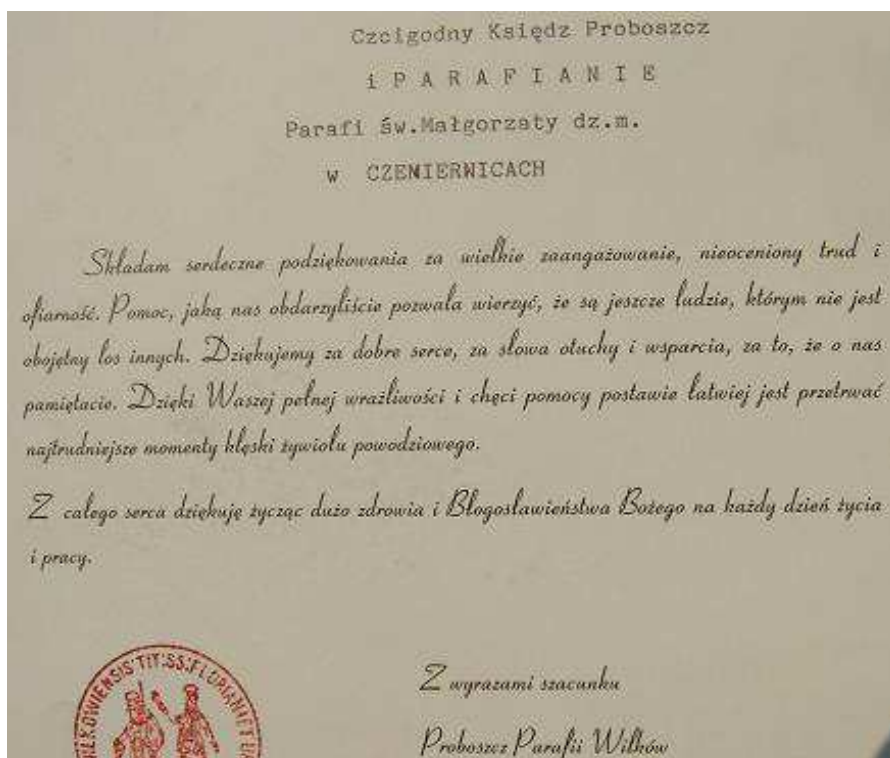 Czcigodny Ksiądz Proboszcz
i P A R A F I A N I E
Parafi św.Małgorzaty dz.m.
w CZEMIERNICACH
Składam serdeczne podziękowania za wielkie zaangażowanie, nieoceniony trud i
ofiarność. Pomoc, jaką nas obdarzyliście pozwala wierzyć, że są jeszcze ludzie, którym nie jest
obojętny los innych. Dziękujemy za dobre serce, za słowa otuchy i wsparcia, za to, że o nas
pamiętacie. Dzięki Waszej pełnej wrażliwości i chęci pomocy postawie łatwiej jest przetrwać
najtrudniejsze momenty klęski żywiołu powodziowego.
Z całego serca dziękuję życząc dużo zdrowia i Błogosławieństwa Bożego na każdy dzień życia
i pracy.
TIT:SS:FLORIANI ET
Z wyrazami szacunku
Proboszcz Parafii Wilków